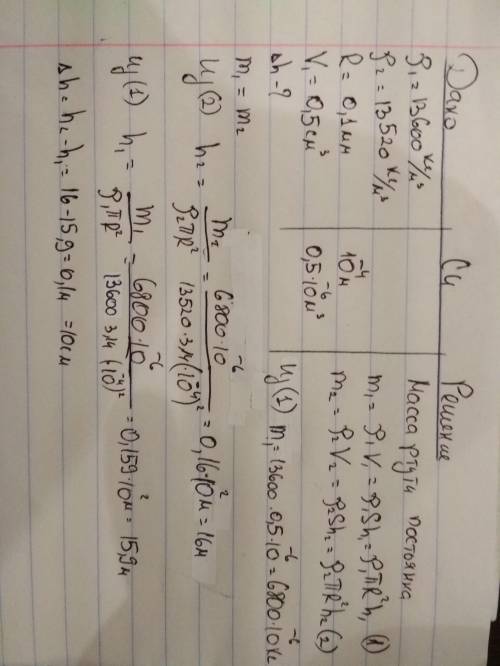 Дано
ρ₁ = 13600 кг/м³
ρ₂ = 13520 кг/м³
R = 0,1 мм
V₁ = 0,5 см³
Δh - ?
СИ
10⁻⁴ м
0,5·10⁻⁶ м³
Решение
Масса ртути постоянна
m₁ = ρ₁V₁ = ρ₁Sh₁ = ρ₁πR²h₁ (1)
m₂ = ρ₂V₂ = ρ₂Sh₂ = ρ₂πR²h₂ (2)
Из (1) m₁ = 13600·0,5·10⁻⁶ = 6800·10⁻⁶ кг
m₁ = m₂
Из (2) h₂ = m₂/ρ₂πR² = 6800·10⁻⁶/13520·3,14(·10⁻⁴)² = 0,16·10² м = 16 м
Из (1) h₁ = m₁/ρ₁πR² = 6800·10⁻⁶/13600·3,14(·10⁻⁴)² = 0,159·10² м = 15,9 м
Δh = h₂ - h₁ = 16 - 15,9 = 0,1 м = 10 см